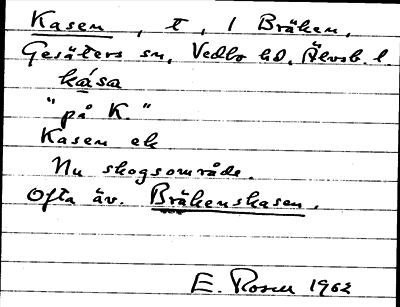 Kasen, t, 1 Bräken,
Gesäters sn, Vedbo hd, Älvsb. l.
ka̱´sa
"på K."
Kasen ek
Nu skogsområde.
Ofta äv. Bräkenskasen.
E. Rosen 1962